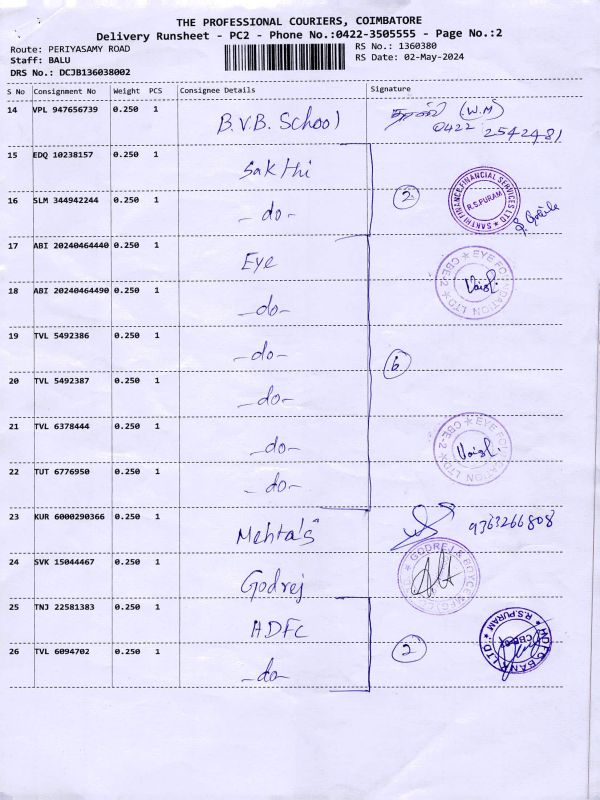 THE PROFESSIONAL COURIERS, COIMBATORE
Delivery Runsheet - PC2 - Phone No.:0422-3505555 - Page No.:2
Route: PERIYASAMY ROAD
RS No.: 1360380
Staff: BALU
RS Date: 02-May-2024
DRS No.: DCJB136038002
S No Consignment No Weight PCS Consignee Details Signature
14 VPL 947656739 0.250 1 B.V.B. School (W.M)
0422 2542481
15 EDQ 10238157 0.250 1 Sakthi
16 SLM 344942244 0.250 1 -do- 2 SAKTHI FINANCE FINANCIAL SERVICES LTD R.S.PURAM
17 ABI 20240464440 0.250 1 Eye EYE FOUNDATION LTD CBE-2
18 ABI 20240464490 0.250 1 -do-
19 TVL 5492386 0.250 1 -do-
20 TVL 5492387 0.250 1 -do- 6
21 TVL 6378444 0.250 1 -do- EYE FOUNDATION LTD CBE-2
22 TUT 6776950 0.250 1 -do-
23 KUR 6000290366 0.250 1 Mehta's" 9363266808
24 SVK 15044467 0.250 1 Godrej GODREJ & BOYCE
25 TNJ 22581383 0.250 1 HDFC
26 TVL 6094702 0.250 1 -do- 2 HDFC BANK LTD R.S.PURAM